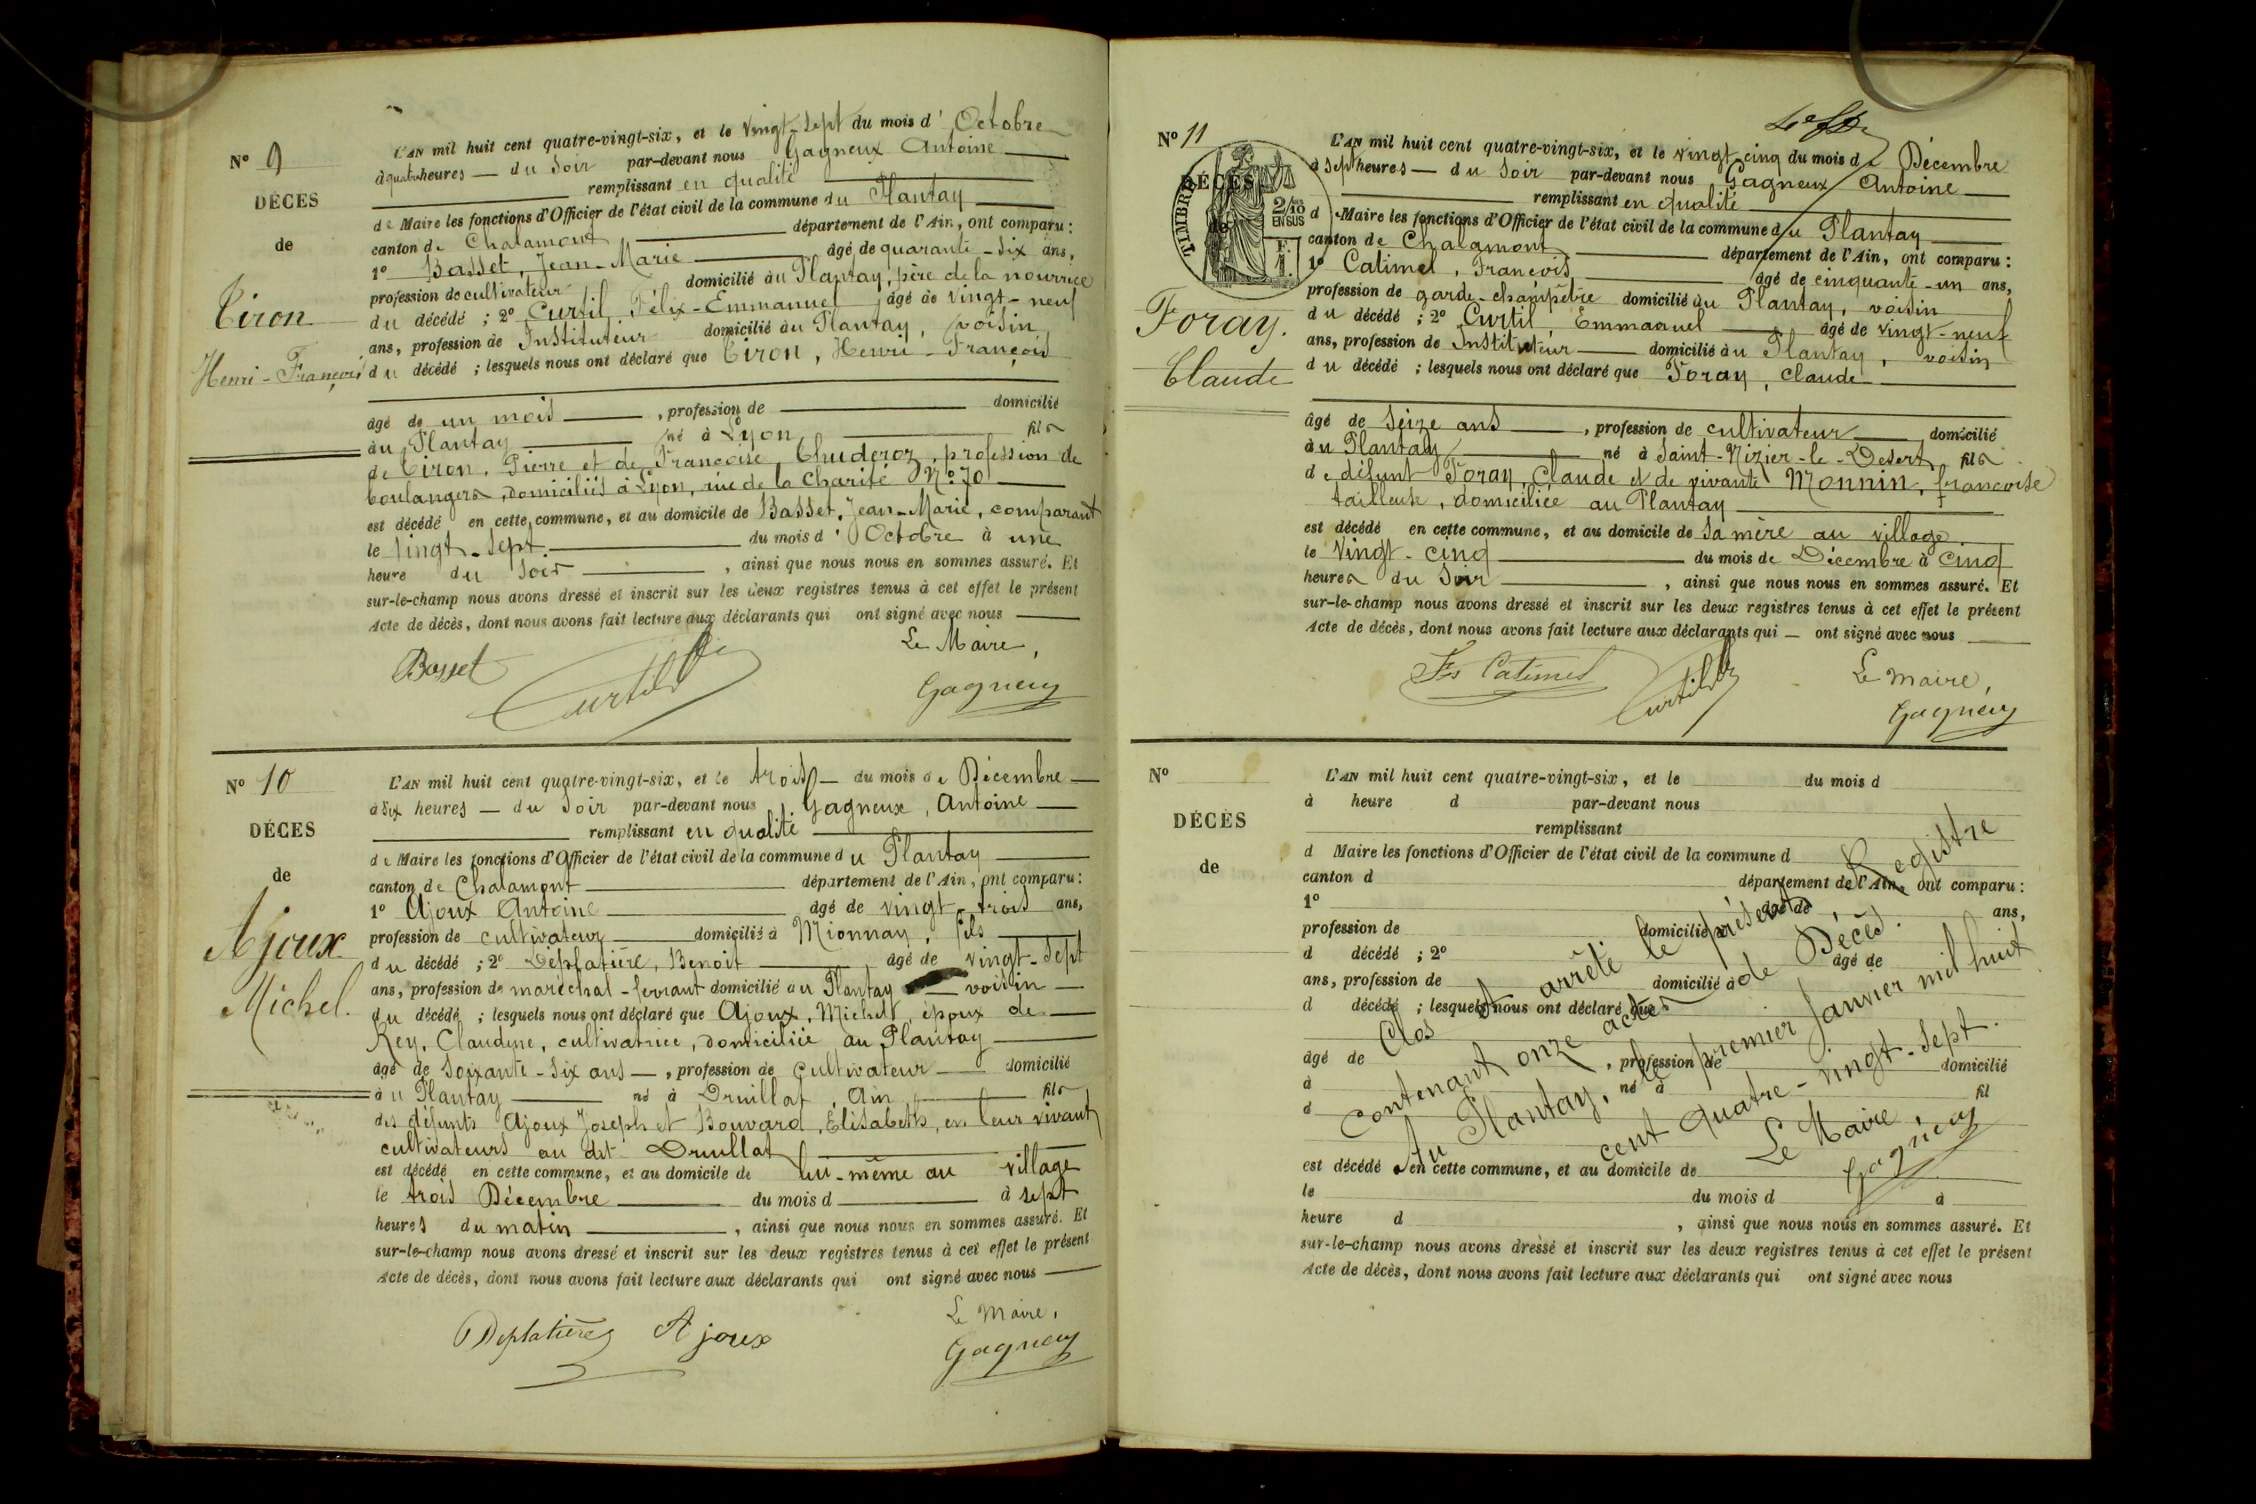 N° 9
DÉCES
de
Tiron
Henri-François
L'AN mil huit cent quatre-vingt-six, et le vingt-sept du mois d'Octobre
à quatre heures du Soir par-devant nous Gagneux Antoine
remplissant en qualité
de Maire les fonctions d'Officier de l'état civil de la commune du Plantay
canton de Chalamont département de l'Ain, ont comparu:
1° Basset, Jean-Marie âgé de quarante-six ans,
profession de cultivateur domicilié au Plantay, père de la nourrice
du décédé ; 2° Curtil Félix-Emmanuel âgé de vingt-neuf
ans, profession de Instituteur domicilié au Plantay, voisin
du décédé ; lesquels nous ont déclaré que Tiron, Henri-François
âgé de un mois, profession de domicilié
au Plantay né à Lyon, fils
de Tiron, Pierre et de Françoise Chuderoz, profession de
boulangers, domiciliés à Lyon, rue de la Charité N° 70
est décédé en cette commune, et au domicile de Basset, Jean-Marie, comparant
le Vingt-sept du mois d'Octobre à une
heure du Soir, ainsi que nous nous en sommes assuré. Et
sur-le-champ nous avons dressé et inscrit sur les deux registres tenus à cet effet le présent
Acte de décès, dont nous avons fait lecture aux déclarants qui ont signé avec nous
Le Maire,
Basset Curtil Gagneux
N° 10
DÉCES
de
Ajoux
Michel.
L'AN mil huit cent quatre-vingt-six, et le trois du mois de Décembre
à Six heures du Soir par-devant nous Gagneux, Antoine
remplissant en qualité
de Maire les fonctions d'Officier de l'état civil de la commune du Plantay
canton de Chalamont département de l'Ain, ont comparu:
1° Ajoux Antoine âgé de vingt-trois ans,
profession de cultivateur domicilié à Mionnay, fils
du décédé ; 2° Déplatière, Benoit âgé de vingt-sept
ans, profession de maréchal-ferrant domicilié au Plantay voisin
du décédé ; lesquels nous ont déclaré que Ajoux, Michel, époux de
Rey, Claudine, cultivatrice, domiciliée au Plantay
âgé de Soixante-Six ans, profession de Cultivateur domicilié
au Plantay né à Druillat, Ain, fils
des défunts Ajoux Joseph et Bouvard, Elisabeth, en leur vivant
cultivateurs au dit Druillat
est décédé en cette commune, et au domicile de lui-même au village
le trois Décembre du mois d à sept
heures du matin, ainsi que nous nous en sommes assuré. Et
sur-le-champ nous avons dressé et inscrit sur les deux registres tenus à cet effet le présent
Acte de décès, dont nous avons fait lecture aux déclarants qui ont signé avec nous
Le Maire,
Deplatière Ajoux Gagneux
N° 11
DÉCES
de
TIMBRE
2/10
EN SUS
F.
1.
Foray.
Claude
L'AN mil huit cent quatre-vingt-six, et le vingt-cinq du mois de Décembre
à Sept heures du Soir par-devant nous Gagneux Antoine
remplissant en qualité
de Maire les fonctions d'Officier de l'état civil de la commune du Plantay
canton de Chalamont département de l'Ain, ont comparu:
1° Catimel, François âgé de cinquante-un ans,
profession de garde-champêtre domicilié au Plantay, voisin
du décédé ; 2° Curtil, Emmanuel âgé de vingt-neuf
ans, profession de Instituteur domicilié au Plantay, voisin
du décédé ; lesquels nous ont déclaré que Foray, Claude
âgé de Seize ans, profession de cultivateur domicilié
au Plantay né à Saint-Nizier-le-Desert fils
de défunt Foray, Claude et de vivante Monnin, françoise
tailleuse, domiciliée au Plantay
est décédé en cette commune, et au domicile de sa mère au village
le Vingt-cinq du mois de Décembre à cinq
heures du Soir, ainsi que nous nous en sommes assuré. Et
sur-le-champ nous avons dressé et inscrit sur les deux registres tenus à cet effet le présent
Acte de décès, dont nous avons fait lecture aux déclarants qui ont signé avec nous
Le Maire,
Fs Catimel Curtil Gagneux
N°
DÉCÈS
de
L'AN mil huit cent quatre-vingt-six, et le du mois d
à heure d par-devant nous
remplissant
d Maire les fonctions d'Officier de l'état civil de la commune d
canton d département de l'Ain, ont comparu:
1° âgé de ans,
profession de domicilié à
d décédé ; 2° âgé de
ans, profession de domicilié à
d décédé ; lesquels nous ont déclaré que
âgé de, profession de domicilié
à né à fil
d
est décédé en cette commune, et au domicile de
le du mois d à
heure d, ainsi que nous nous en sommes assuré. Et
sur-le-champ nous avons dressé et inscrit sur les deux registres tenus à cet effet le présent
Acte de décès, dont nous avons fait lecture aux déclarants qui ont signé avec nous
Clos et arrêté le présent Registre
contenant onze actes de Décès.
Au Plantay, le premier Janvier mil huit
cent quatre-vingt-sept.
Le Maire
Gagneux